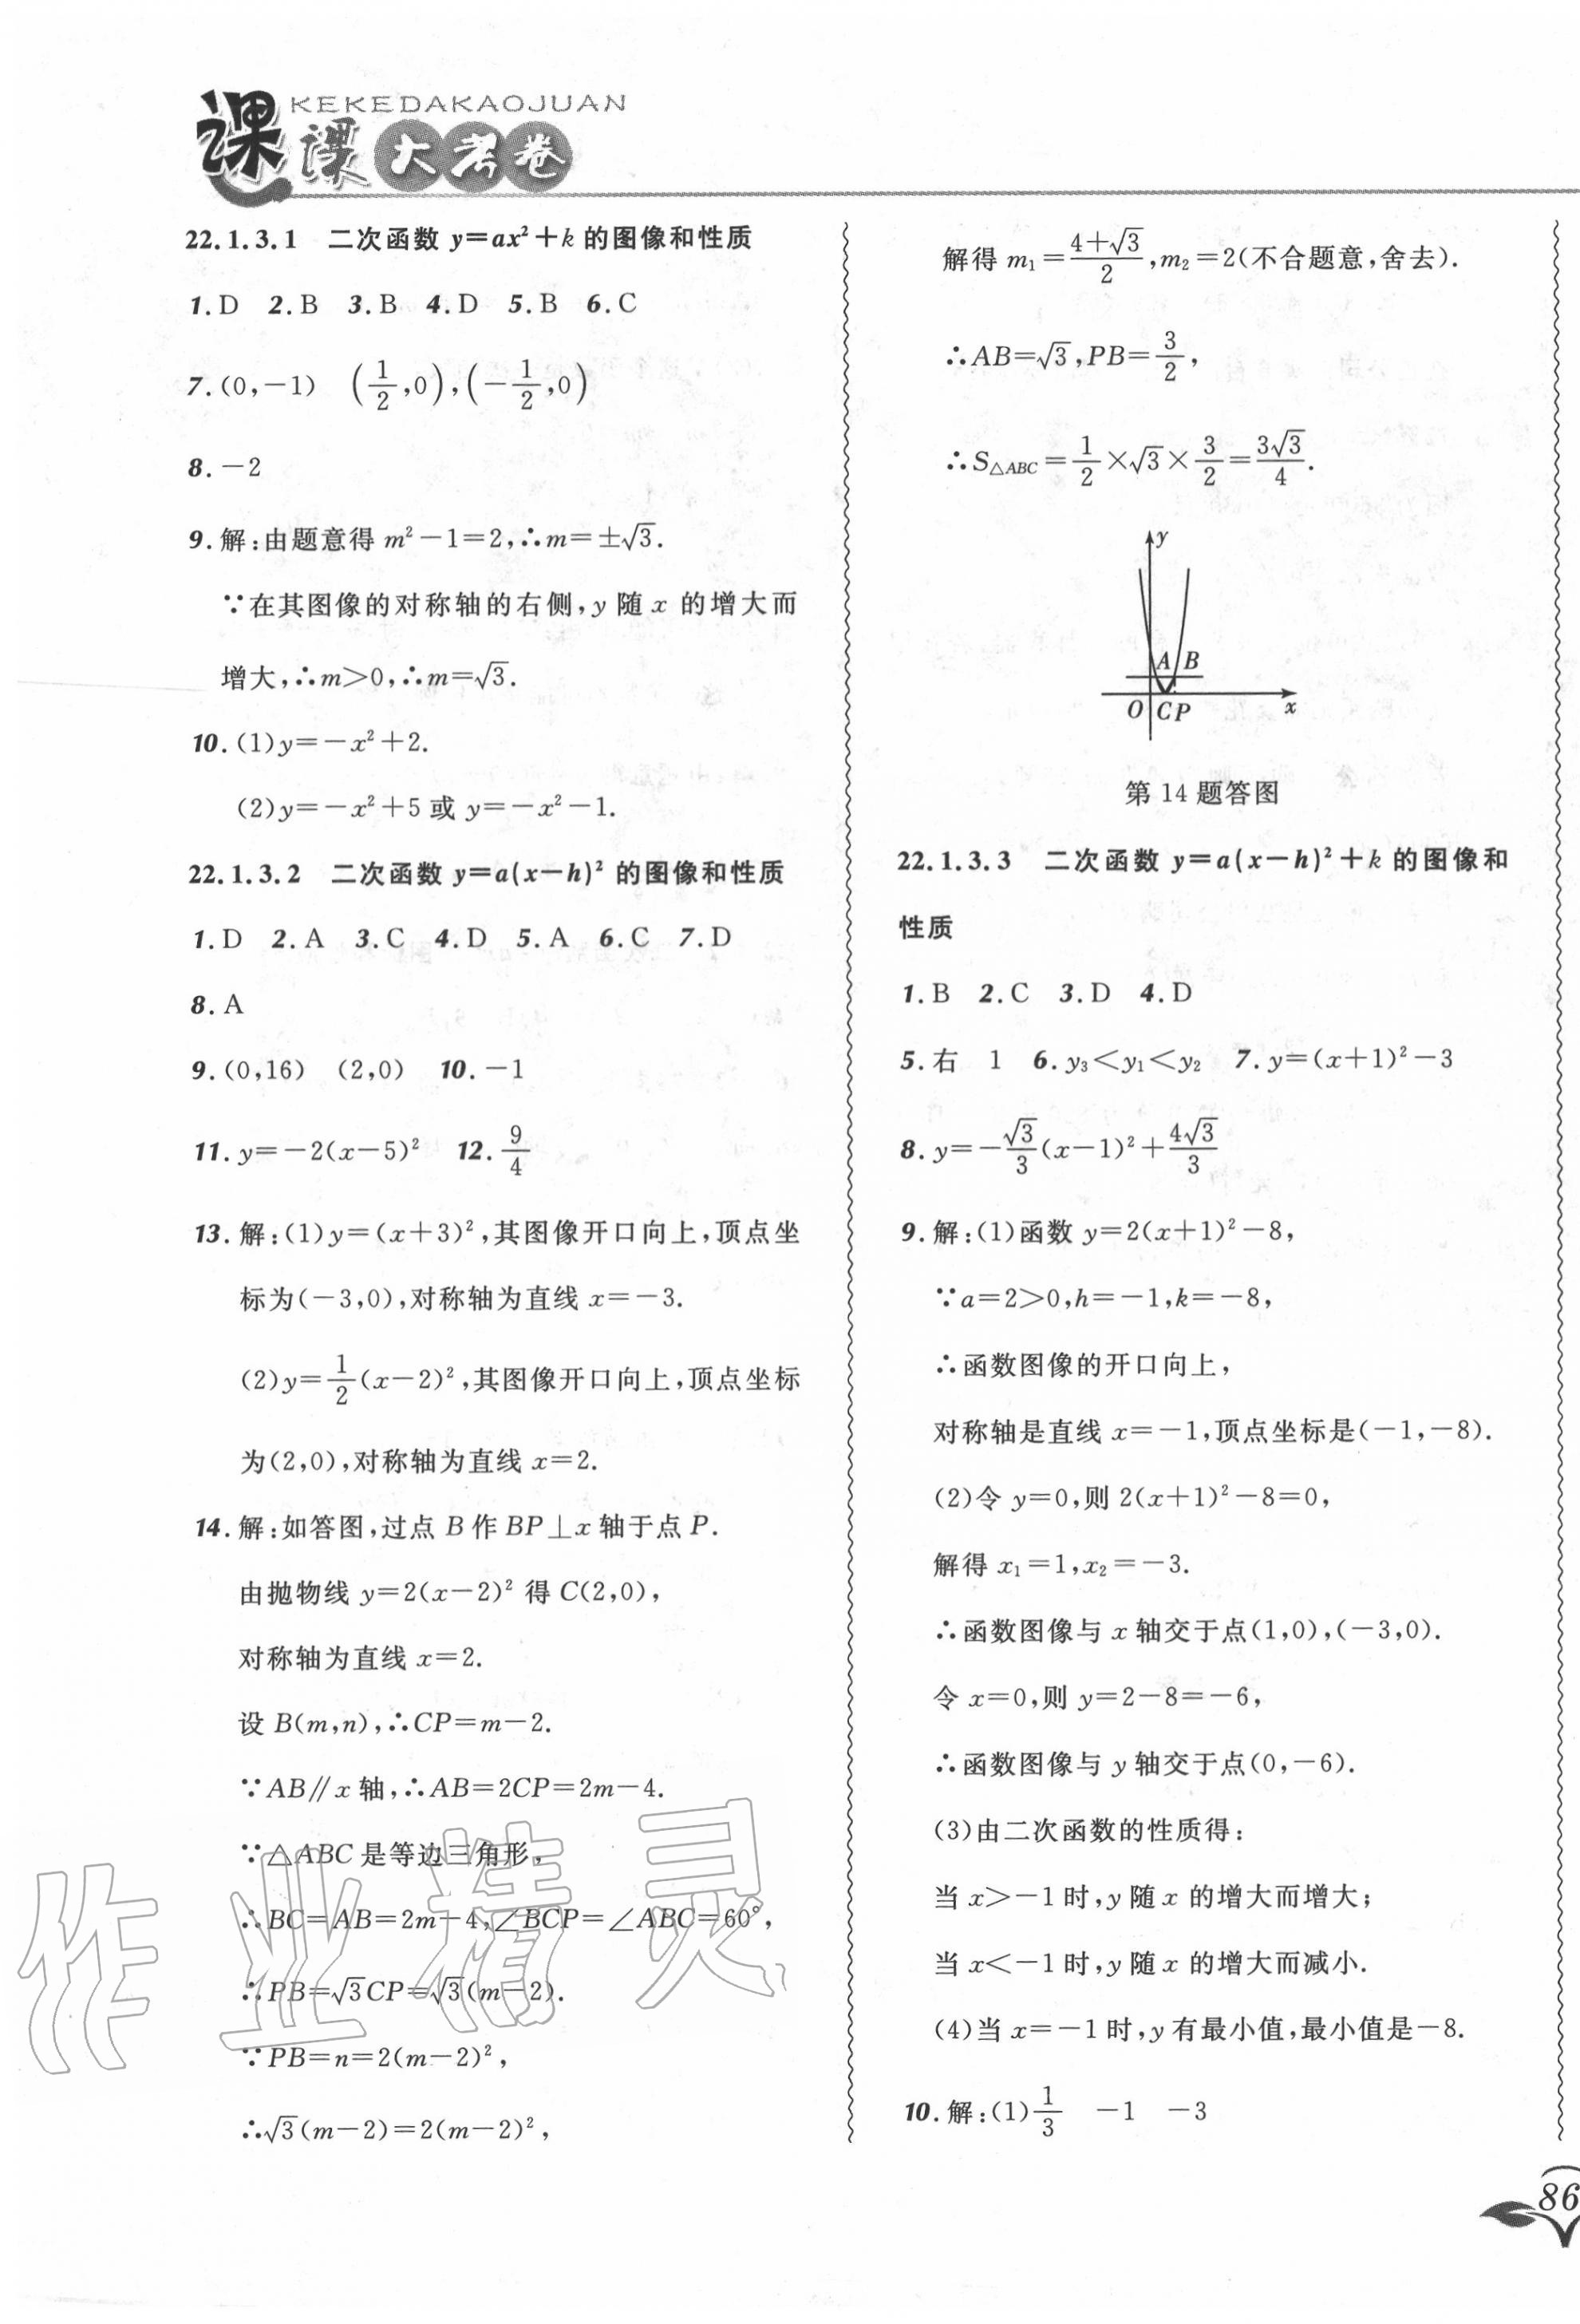 KEKEDAKAOJUAN
课课大考卷
22.1.3.1 二次函数 y=ax²+k 的图像和性质
1.D 2.B 3.B 4.D 5.B 6.C
7.(0,-1) (1/2,0),(-1/2,0)
8.-2
9.解:由题意得 m²-1=2,∴m=±√3.
∵在其图像的对称轴的右侧,y 随 x 的增大而
增大,∴m>0,∴m=√3.
10.(1)y=-x²+2.
(2)y=-x²+5 或 y=-x²-1.
22.1.3.2 二次函数 y=a(x-h)² 的图像和性质
1.D 2.A 3.C 4.D 5.A 6.C 7.D
8.A
9.(0,16) (2,0) 10.-1
11.y=-2(x-5)² 12.9/4
13.解:(1)y=(x+3)²,其图像开口向上,顶点坐
标为(-3,0),对称轴为直线 x=-3.
(2)y=1/2(x-2)²,其图像开口向上,顶点坐标
为(2,0),对称轴为直线 x=2.
14.解:如答图,过点 B 作 BP⊥x 轴于点 P.
由抛物线 y=2(x-2)² 得 C(2,0),
对称轴为直线 x=2.
设 B(m,n),∴CP=m-2.
∵AB∥x 轴,∴AB=2CP=2m-4.
∵△ABC 是等边三角形,
∴BC=AB=2m-4,∠BCP=∠ABC=60°,
∴PB=√3CP=√3(m-2).
∵PB=n=2(m-2)²,
∴√3(m-2)=2(m-2)²,
作业精灵
解得 m₁=(4+√3)/2,m₂=2(不合题意,舍去).
∴AB=√3,PB=3/2,
∴S△ABC=1/2×√3×3/2=3√3/4.
y
A B
O C P x
第 14 题答图
22.1.3.3 二次函数 y=a(x-h)²+k 的图像和
性质
1.B 2.C 3.D 4.D
5.右 1 6.y₃<y₁<y₂ 7.y=(x+1)²-3
8.y=-√3/3(x-1)²+4√3/3
9.解:(1)函数 y=2(x+1)²-8,
∵a=2>0,h=-1,k=-8,
∴函数图像的开口向上,
对称轴是直线 x=-1,顶点坐标是(-1,-8).
(2)令 y=0,则 2(x+1)²-8=0,
解得 x₁=1,x₂=-3.
∴函数图像与 x 轴交于点(1,0),(-3,0).
令 x=0,则 y=2-8=-6,
∴函数图像与 y 轴交于点(0,-6).
(3)由二次函数的性质得:
当 x>-1 时,y 随 x 的增大而增大;
当 x<-1 时,y 随 x 的增大而减小.
(4)当 x=-1 时,y 有最小值,最小值是-8.
10.解:(1)1/3 -1 -3
86